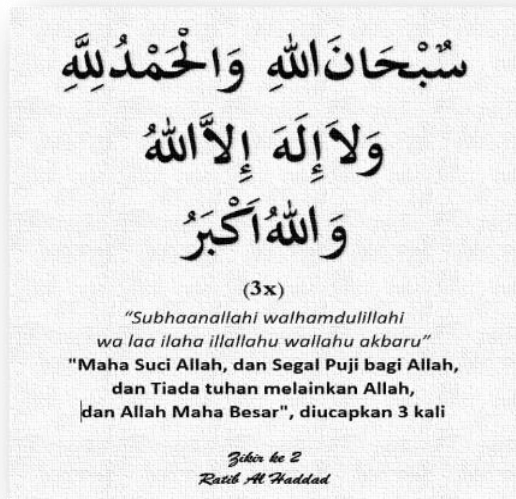 سُبْحَانَ اللهِ وَالْحَمْدُ لِلَّهِ
وَلاَ إِلَهَ إِلاَّ اللهُ
وَ اللهُ اَكْبَرُ
(3x)
"Subhaanallahi walhamdulillahi
wa laa ilaha illallahu wallahu akbaru"
"Maha Suci Allah, dan Segal Puji bagi Allah,
dan Tiada tuhan melainkan Allah,
dan Allah Maha Besar", diucapkan 3 kali
Zikir ke 2
Ratib Al Haddad